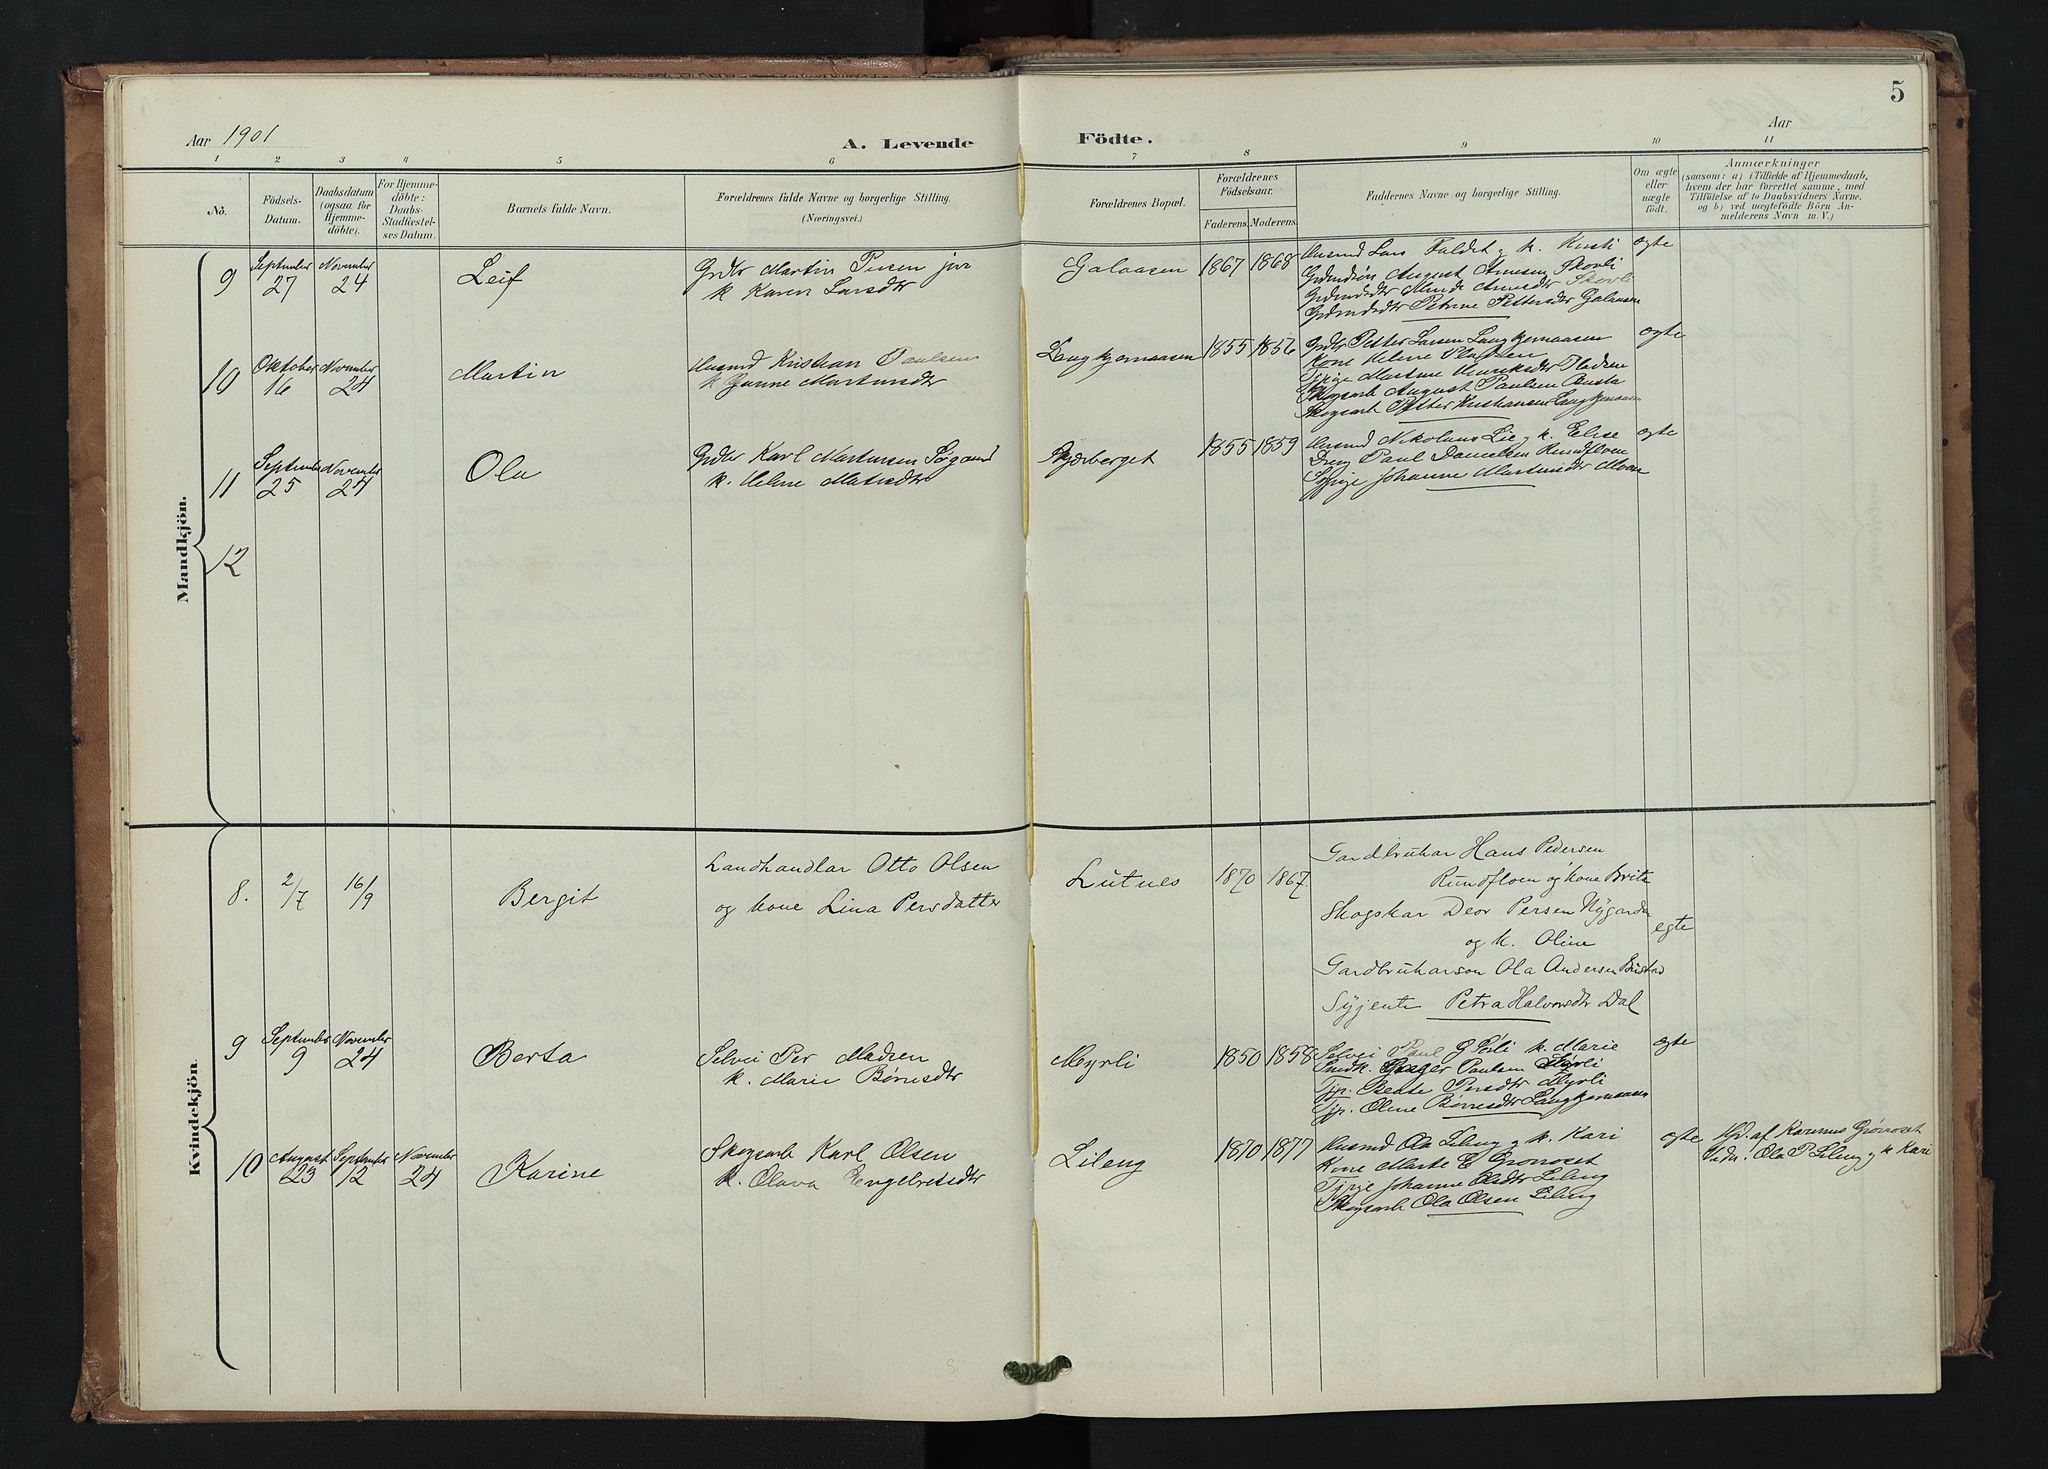 5
Aar 1901
A. Levende
Födte.
Aar
1 2 3 4 5 6 7 8 9 10 11
Nö.
Födsels-
Datum.
Daabsdatum
(ogsaa for
Hjemme-
döbte).
For Hjemme-
döbte:
Daabs-
Stadfæstel-
ses Datum.
Barnets fulde Navn.
Forældrenes fulde Navne og borgerlige Stilling.
(Næringsvei.)
Forældrenes Bopæl.
Forældrenes
Födselsaar.
Faderens. Moderens.
Faddernes Navne og borgerlige Stilling.
Om ægte
eller
uægte
födt.
Anmærkninger
(saasom: a) i Tilfælde af Hjemmedaab,
hvem der har forrettet samme, med
Tilföielse af to Daabsvidners Navne.
og b) ved uægtefödte Börn An-
melderens Navn m. V.)
Mandkjön.
9
September
27
November
24
Leif
Grdbr Martin Persen jvr
k Karen Larsdtr
Galaasen
1867 1868
Lars Faldet og k. Kristi
August Arnesen Skovli
Arnesdtr Skovli
Petrine Pettersdtr Galaasen
egte
10
Oktober
16
November
24
Martin
Husmd Kristian Paulsen
k Gunne Martinsdtr
Langkjernaasen
1855 1856
Grdbr Petter Larsen Langkjernaasen
Kone Helene
Tjpige Martine Henriksdtr
Skogsarb August Paulsen
Skogsarb Petter Kristiansen Langkjernaasen
egte
11
September
25
November
24
Ola
Grdbr Karl Martinsen
k. Helene
Skjærberget
1855 1859
Husmd Nikolaus Lie og k. Elise
Dreng Paul Danielsen Rundfloen
Johanne Martinsdtr Moen
egte
12
Kvindekjön.
8.
2/7
16/9
Bergit
Landhandlar Otto Olsen
og kone Lina Persdatter
Lutnes
1870 1867.
Gardbrukar Hans Pedersen
Rundfloen og kone Brita
Skogskar Peder Persen Nygarden
og k. Oline
Gardbrukarson Ola Andersen Bustad
Syjente Petra Halvorsdtr Dal
egte
9
September
9
November
24
Berta
Selvei Per Madsen
k. Marie Børresdtr
Myrli
1850 1858
Selvei Paul G k. Marie
Paulsen
Tjp. Beate Persdtr Myrli
Tjp. Oline Børresdtr Langkjernaasen
egte
10
August
23
September
12
November
24
Karine
Skogsarb Karl Olsen
k. Olava Engebretsdtr
Lileng
1870 1877
Husmd Ola Lileng og k. Kari
Kone Marte E Grønoset
Tjpige Johanne Olsdtr Lileng
Skogsarb Ola Olsen Lileng
egte
Hjd. af Karinus Grønoset
Vidn: Ola P Lileng og k Kari